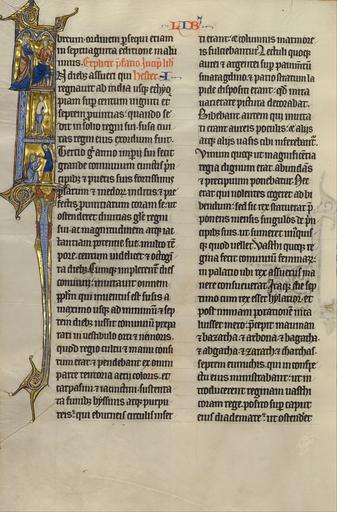 LIB
breum ordinem psequi etiam
in septuaginta editione malu
imus. Explicit
N diebus assueri qui Hester. I
regnauit ab india usq; ethyo
piam sup centum uiginti et
septem puincias: quando se
dit in solio regni sui susa ciui
tas regni eius exordium fuit.
Tertio g anno impii sui fecit
grande conuiuium cunctis pn
cipibz & pueris suis fortissimis
psarum & medorum inclitis & pre
fectis puinciarum coram se: ut
ostenderet diuitias glie regni
sui ac magnitudinem atq; iac
tantiam potentie sue: multo tem
pore. centum uidelicet & octogin
ta diebz. Cumq; implerentur dies
conuiuii: inuitauit omnem
pplm qui inuentus est susis a
maximo usq; ad minimum & sep
tem diebz iussit conuiuium prepa
rari in uestibulo orti & nemoris.
quod regio cultu & manu consi
tum erat: & pendebant ex omni
parte tentoria aerii coloris. et
carpasini & iacinctini sustenta
ta funibz byssinis atq; purpu
reis: qui eburneis circulis inser
ti erant: & columnis marmore
is fulciebantur. Lectuli quoq;
aurei & argentei sup pauimentum
smaragdino & pario stratum la
pide dispositi erant: qd mira
uarietate pictura decorabat.
Bibebant autem qui inuita
ti erant aureis poculis: & aliis
atq; aliis uasis cibi inferebantur.
Uinum quoq; ut magnificentia
regia dignum erat: abundans
& precipuum ponebatur. Nec
erat qui nolentes cogeret ad bi
bendum: sed sic rex statuerat. p
ponens mensis singulos de pn
cipibz suis. ut sumeret unusquis
q; quod uellet. Uasthi quoq; re
gina fecit conuiuium feminarum:
in palatio ubi rex assuerus ma
nere consueuerat. Itaq; die sep
timo cum rex esset hylarior: et
post nimiam potationem inca
luisset mero: precepit mauman
& bazatha. & arbona. & bagatha.
& abgatha. & zarath. & charchas.
septem eunuchis. qui in conspe
ctu eius ministrabant: ut in
troducerent reginam uasthi
coram rege. posito sup caput
eius diademate: ut ostenderet